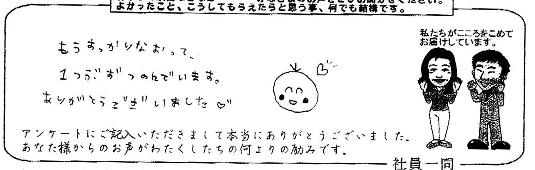 よかったこと、こうしてもらえたらと思う事、何でも結構です。
私たちがこころをこめて
お届けしています。
もうすっかりなおって、
1つぶずつのんでいます。
ありがとうございました♡
アンケートにご記入いただきまして本当にありがとうございました。
あなた様からのお声がわたくしたちの何よりの励みです。
社員一同